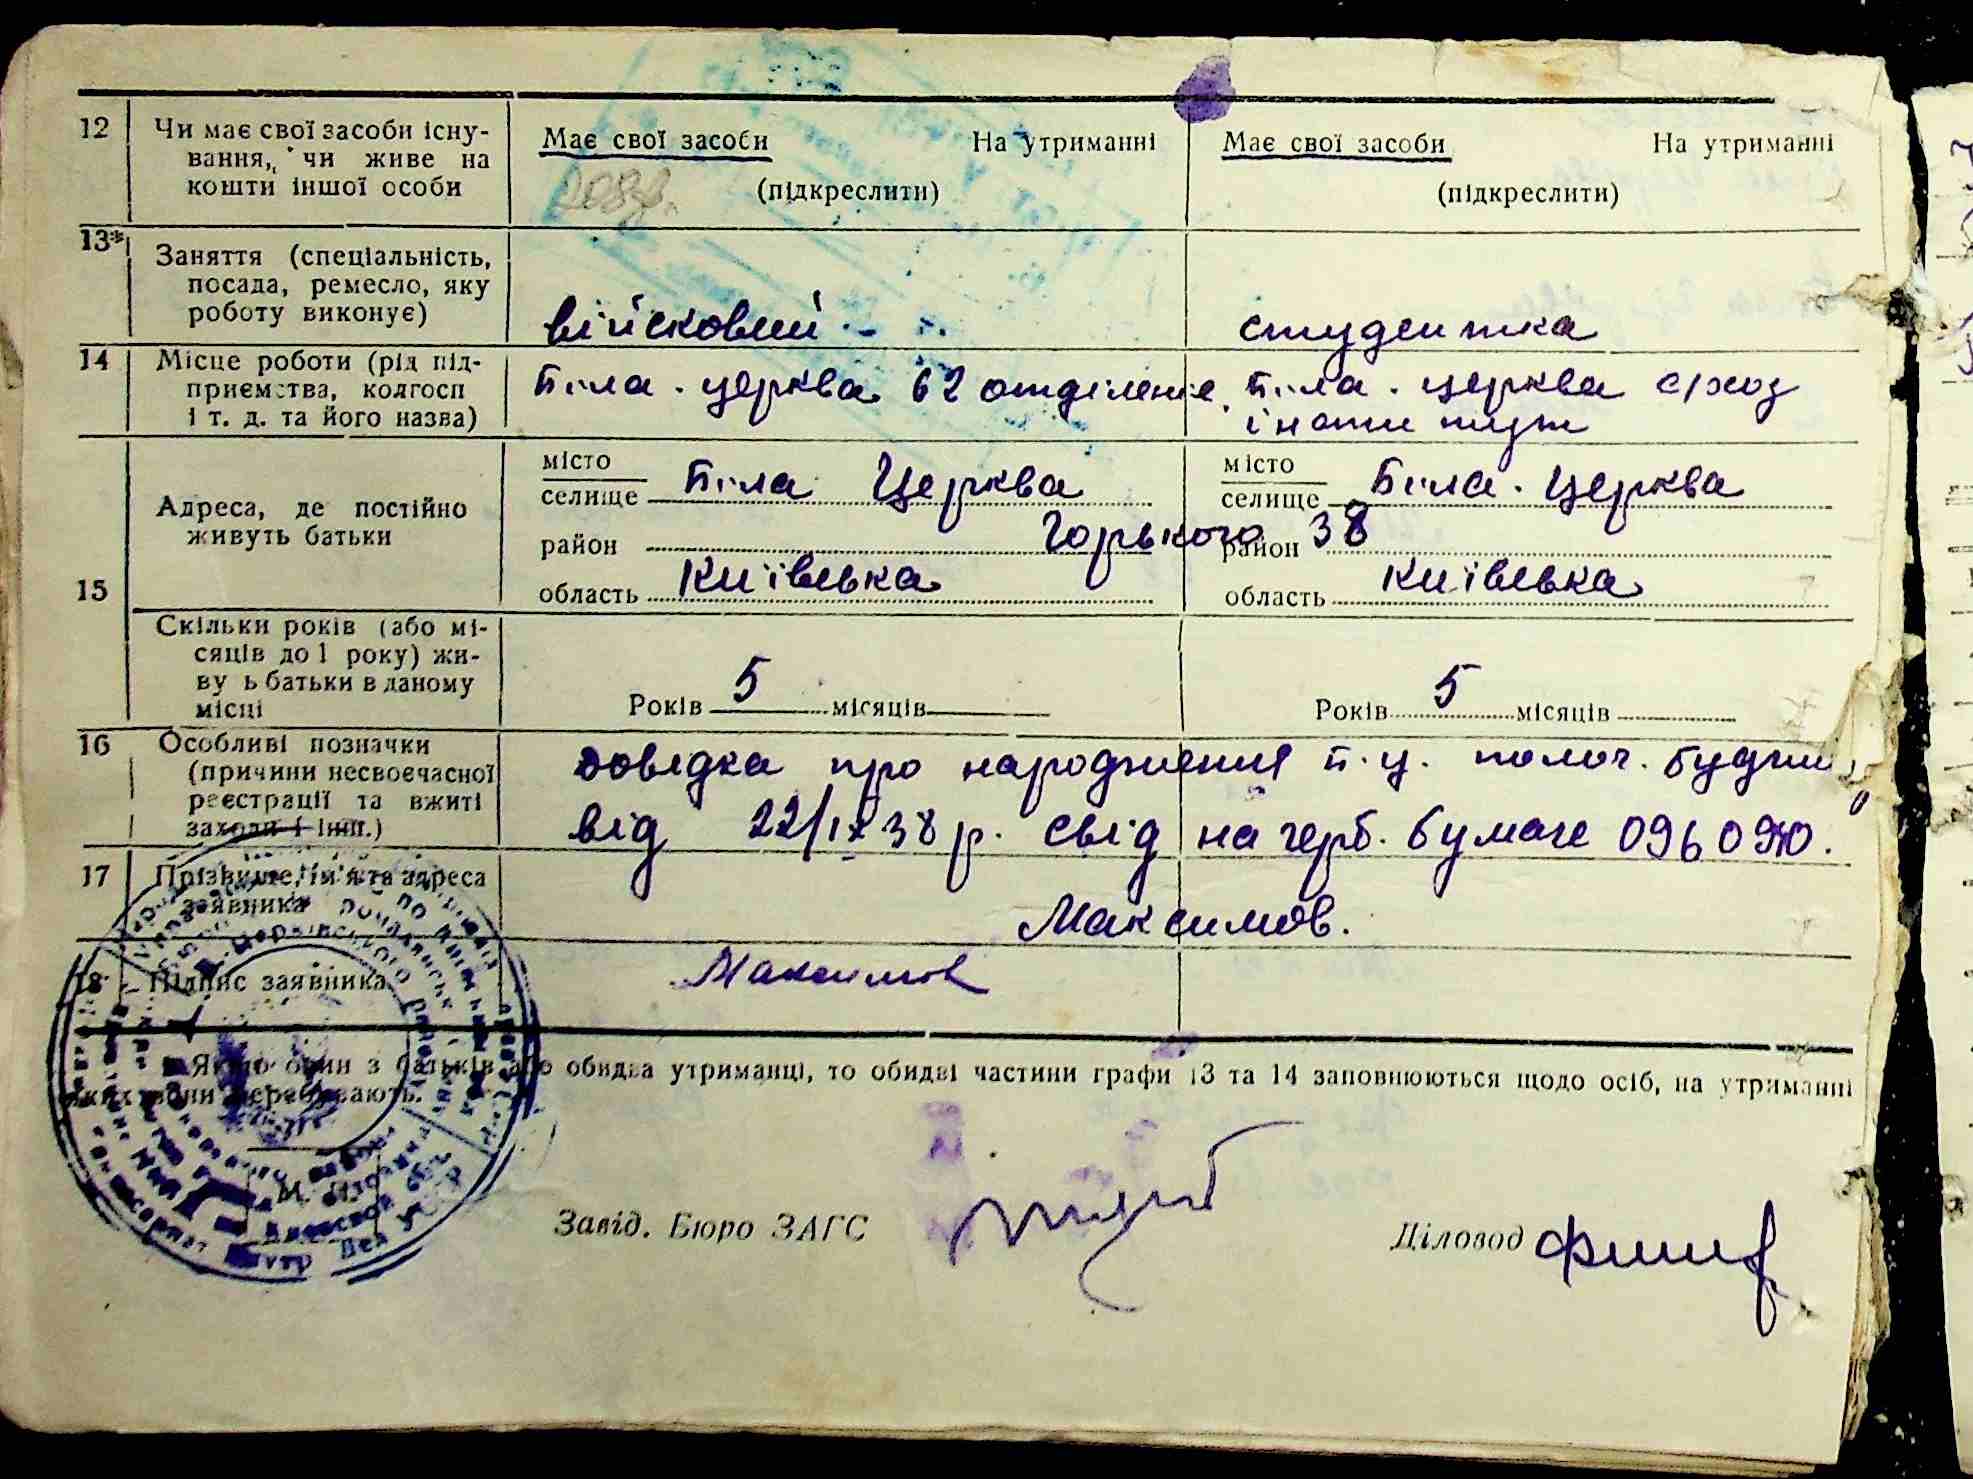 12 Чи має свої засоби існу-
вання, чи живе на
кошти іншої особи
Має свої засоби На утриманні
(підкреслити)
Має свої засоби На утриманні
(підкреслити)
13* Заняття (спеціальність,
посада, ремесло, яку
роботу виконує)
військовий
студентка
14 Місце роботи (рід під-
приємства, колгосп
і т. д. та його назва)
Біла. церква 62 отділеніе.
Біла. церква с/хоз
інститут
15 Адреса, де постійно
живуть батьки
місто
селище Біла Церква
район Горького 38
область Київська
місто
селище Біла. Церква
район
область Київська
Скільки років (або мі-
сяців до 1 року) жи-
ву ь батьки в даному
місці
Років 5 місяців
Років 5 місяців
16 Особливі позначки
(причини несвоєчасної
реєстрації та вжиті
заходи і інш.)
довідка про народження Б.Ц. полог. будин
від 22/IX 38 р. свід на герб. бумаге 096090.
17 Прізвище, ім'я та адреса
заявника
Максимов.
18 Підпис заявника
Максимов
Якщо один з батьків або обидва утриманці, то обидві частини графи 13 та 14 заповнюються щодо осіб, на утриманні
яких вони перебувають.
Завід. Бюро ЗАГС
Діловод